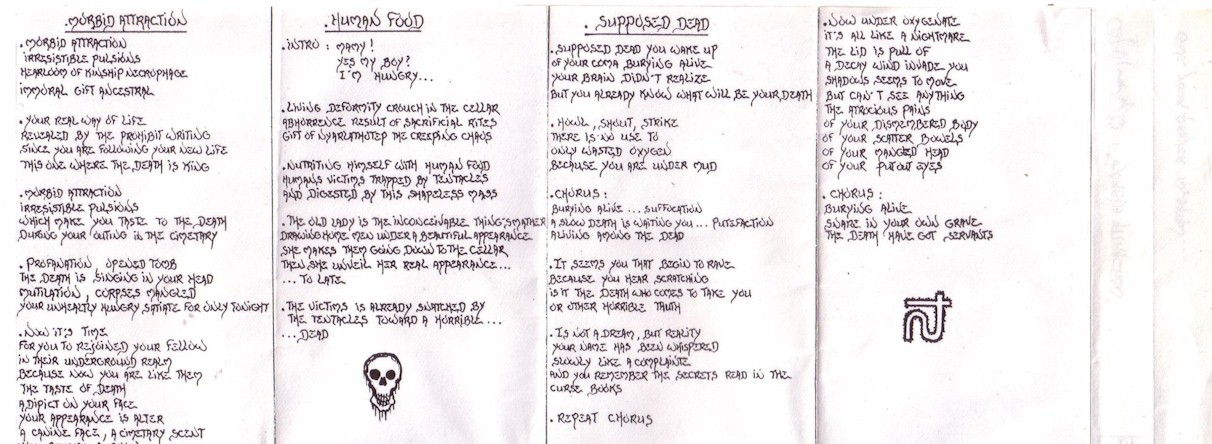 .MORBID ATTRACTION
.MORBID ATTRACTION
IRRESISTIBLE PULSIONS
HEARLOOM OF KINSHIP NECROPHAGE
IMMORAL GIFT ANCESTRAL
.YOUR REAL WAY OF LIFE
REVEALED BY THE PROHIBIT WRITING
SINCE YOU ARE FOLLOWING YOUR NEW LIFE
THIS ONE WHERE THE DEATH IS KING
.MORBID ATTRACTION
IRRESISTIBLE PULSIONS
WHICH MAKE YOU TASTE TO THE DEATH
DURING YOUR OUTING IN THE CIMETARY
.PROFANATION OPENED TOMB
THE DEATH IS SINGING IN YOUR HEAD
MUTILATION, CORPSES MANGLED
YOUR UNHEALTY HUNGRY SATIATE FOR ONLY TONIGHT
.NOW IT'S TIME
FOR YOU TO REJOINED YOUR FELLOW
IN THEIR UNDERGROUND REALM
BECAUSE NOW YOU ARE LIKE THEM
THE TASTE OF DEATH
A DIPICT ON YOUR FACE
YOUR APPEARANCE IS ALTER
A CANINE FACE, A CIMETARY SCENT
.HUMAN FOOD
.INTRO : MAMY!
YES MY BOY?
I'M HUNGRY...
.LIVING DEFORMITY CROUCH IN THE CELLAR
ABHORRENCE RESULT OF SACRIFICIAL RITES
GIFT OF NYARLATHOTEP THE CREEPING CHAOS
.NUTRITING HIMSELF WITH HUMAN FOOD
HUMANS VICTIMS TRAPPED BY TENTACLES
AND DIGESTED BY THIS SHAPELESS MASS
.THE OLD LADY IS THE INCONCEIVABLE THING'S MATHER
DRAWING HOME MEN UNDER A BEAUTIFUL APPEARANCE
SHE MAKES THEM GOING DOWN TO THE CELLAR
THEN SHE UNVEIL HER REAL APPEARANCE...
... TO LATE
.THE VICTIMS IS ALREADY SNATCHED BY
THE TENTACLES TOWARD A HORRIBLE...
...DEAD
.SUPPOSED DEAD
.SUPPOSED DEAD YOU WAKE UP
OF YOUR COMA BURYING ALIVE
YOUR BRAIN DIDN'T REALIZE
BUT YOU ALREADY KNOW WHAT WILL BE YOUR DEATH
.HOWL, SHOUT, STRIKE
THERE IS NO USE TO
ONLY WASTED OXYGEN
BECAUSE YOU ARE UNDER MUD
.CHORUS :
BURYING ALIVE ... SUFFOCATION
A SLOW DEATH IS WAITING YOU ... PUTEFACTION
ALIVING AMONG THE DEAD
.IT SEEMS YOU THAT BEGIN TO RAVE
BECAUSE YOU HEAR SCRATCHING
IS IT THE DEATH WHO COMES TO TAKE YOU
OR OTHER HORRIBLE TRUTH
.IS NOT A DREAM, BUT REALITY
YOUR NAME HAS BEEN WHISPERED
SLOWLY LIKE A COMPLAINTE
AND YOU REMEMBER THE SECRETS READ IN THE
CURSE BOOKS
.REPEAT CHORUS
.NOW UNDER OXYGENATE
IT'S ALL LIKE A NIGHTMARE
THE LID IS PULL OF
A DECAY WIND INVADE YOU
SHADOWS SEEMS TO MOVE
BUT CAN'T SEE ANYTHING
THE ATROCIOUS PAINS
OF YOUR DISMEMBERED BODY
OF YOUR SCATTER BOWELS
OF YOUR MANGED HEAD
OF YOUR PUTOUT EYES
.CHORUS :
BURYING ALIVE
SNARE IN YOUR OWN GRAVE
THE DEATH HAVE GOT SERVANTS